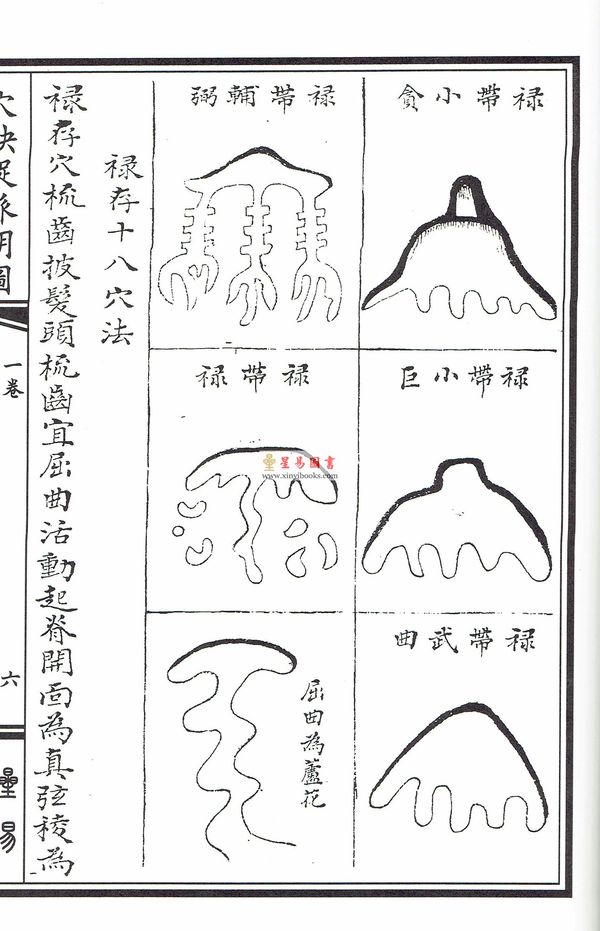 禄帶小貪
禄帶小巨
禄帶武曲
禄帶輔弼
禄帶禄
屈曲為蘆花
禄存十八穴法
禄存穴梳齒披髮頭梳齒宜屈曲活動起脊開面為真弦稜為
一卷
六
星易
星易圖書
www.xinyibooks.com